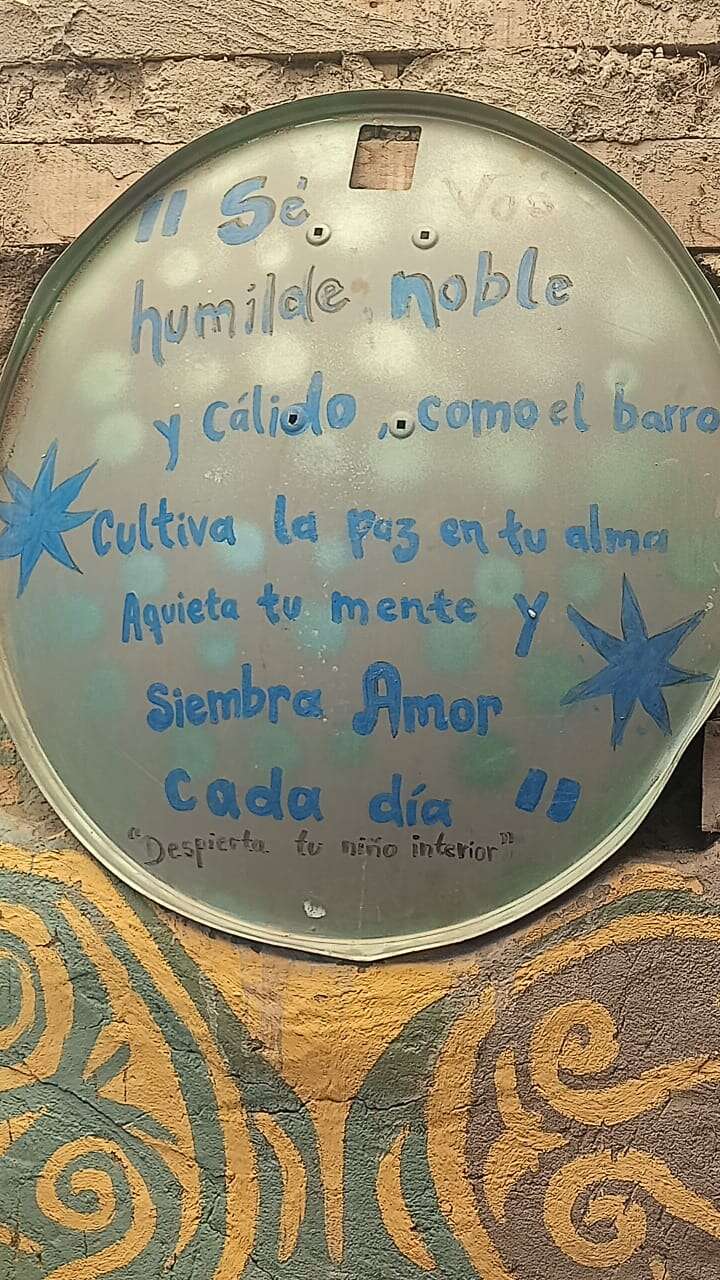 "Sé
humilde, noble
y cálido, como el barro
Cultiva la paz en tu alma
Aquieta tu mente y
siembra Amor
cada día"
"Despierta tu niño interior"